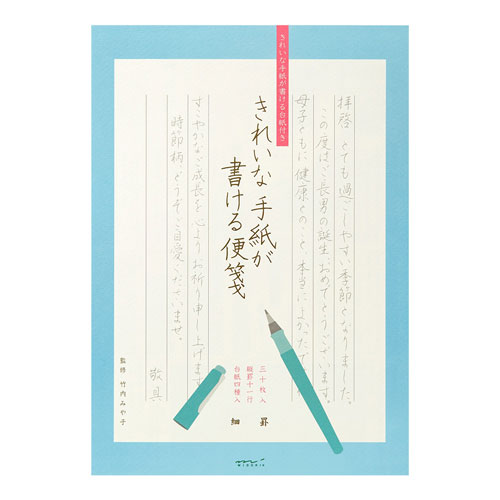 きれいな手紙が書ける台紙付き
拝啓 とても過ごしやすい季節となりました。
この度はご長男の誕生、おめでとうございます。
母子ともに健康とのこと、本当によかったです
きれいな手紙が
書ける便箋
すこやかなご成長を心よりお祈り申し上げます
時節柄、どうぞご自愛くださいませ。
敬具
三十枚入
縦罫十一行
台紙四種入
細罫
監修 竹内みや子
MIDORI